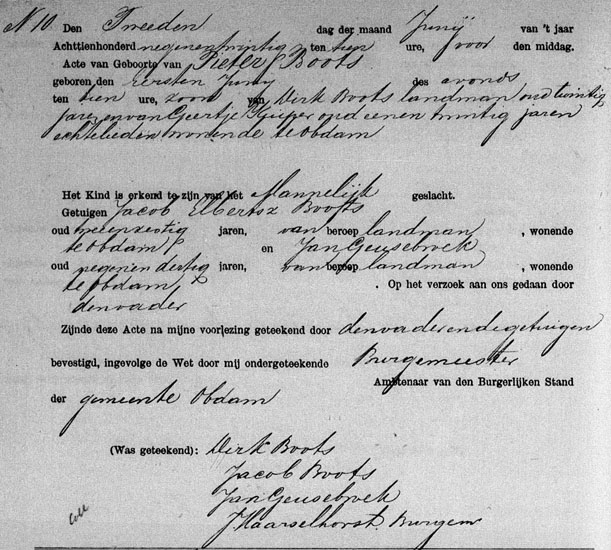 N 10. Den Tweeden dag der maand Junij van 't jaar
Achttienhonderd negenentwintig ten tien ure, voor den middag.
Acte van Geboorte van Pieter Boots
geboren den eersten Junij des avonds
ten tien ure, zoon van Dirk Boots landman oud twintig
jaren en van Geertje Kuiper oud eenen twintig jaren
echtelieden wonende te Obdam
Het Kind is erkend te zijn van het Mannelijk geslacht.
Getuigen Jacob Elbertsz Boots
oud tweenzestig jaren, van beroep landman, wonende
te Obdam en Jan Geusebroek
oud negenendertig jaren, van beroep landman, wonende
te Obdam . Op het verzoek aan ons gedaan door
den vader
Zijnde deze Acte na mijne voorlezing geteekend door den vader en de getuigen
bevestigd, ingevolge de Wet door mij ondergeteekende Burgemeester
Ambtenaar van den Burgerlijken Stand
der gemeente Obdam
(Was geteekend): Dirk Boots
Jacob Boots
Jan Geusebroek
J Haarselhorst Burgemr
Coll